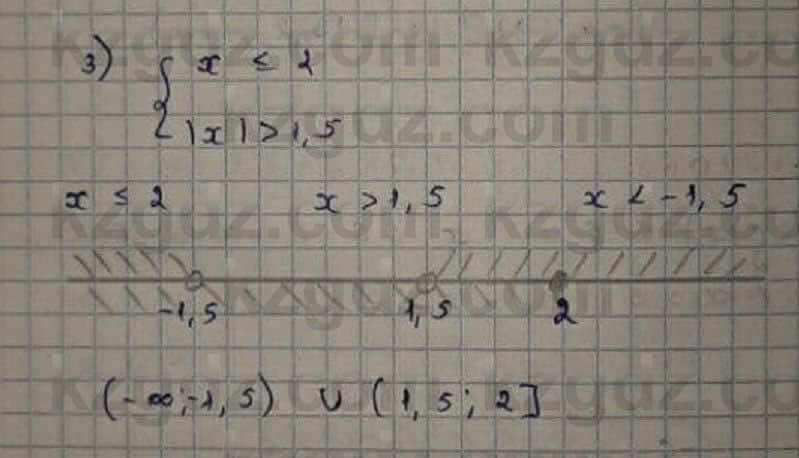 3) { x ≤ 2
|x| > 1,5
x ≤ 2 x > 1,5 x < -1,5
-1,5 1,5 2
(-∞;-1,5) ∪ (1,5; 2]
kzgdz.com kzgdz.co
kzgdz.com
kzgdz.com kzgdz.co
kzgdz.com
kzgdz.com kzgdz.co